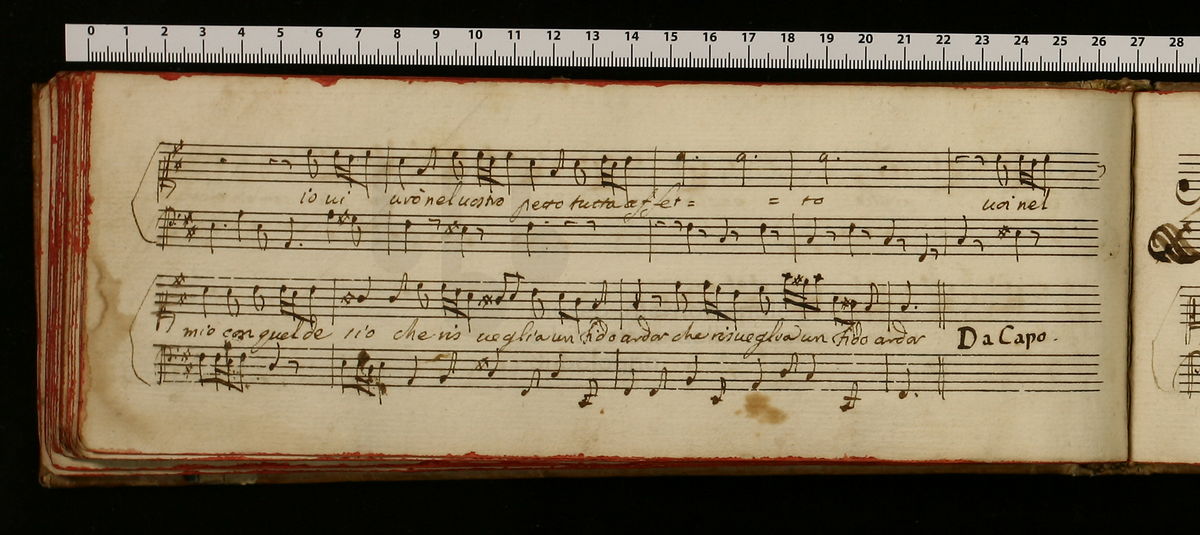 0 1 2 3 4 5 6 7 8 9 10 11 12 13 14 15 16 17 18 19 20 21 22 23 24 25 26 27 28
io vi urò nel vostro petto tutta affet = = to voi nel
mio con quel de sio che ris veglia un fido ardor che risveglia un fido ardor Da Capo.